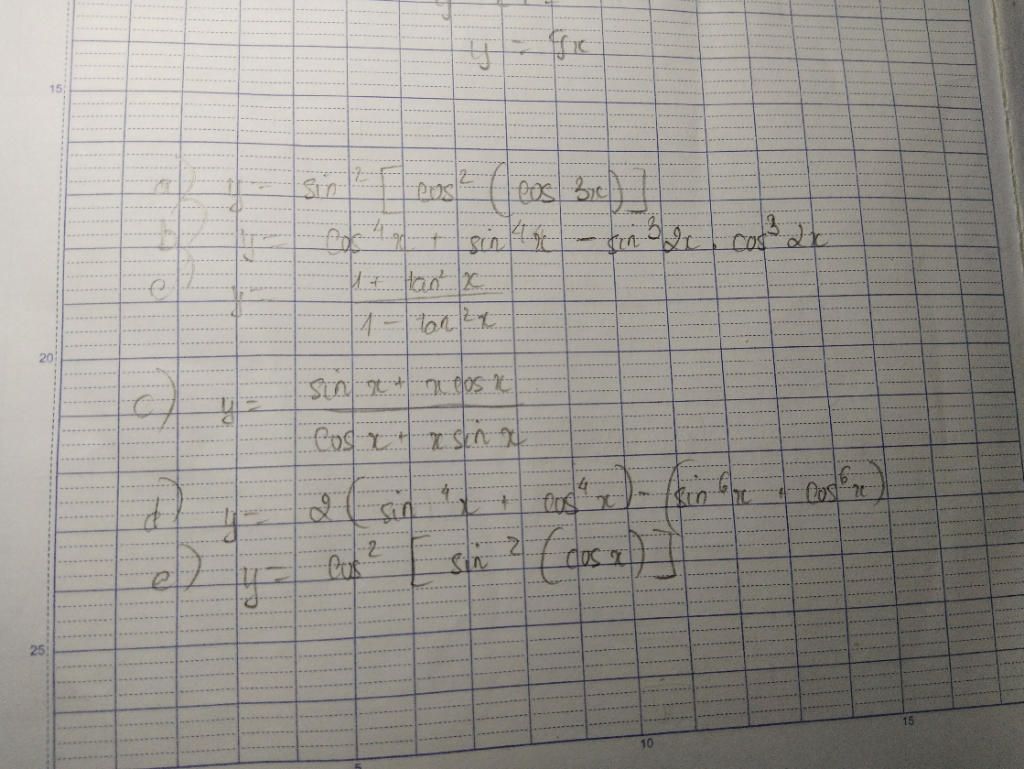 y = tgx
15
a) y = sin² [ cos² ( cos 3x) ]
b) y = cos⁴x + sin⁴x - sin³2x . cos³2x
c) y = 1 + tan²x
1 - tan²x
20
c) y = sin x + x cos x
cos x + x sin x
d) y = 2 ( sin⁴x + cos⁴x ) - ( sin⁶x + cos⁶x )
e) y = cos² [ sin² ( cos x ) ]
25
5 10 15